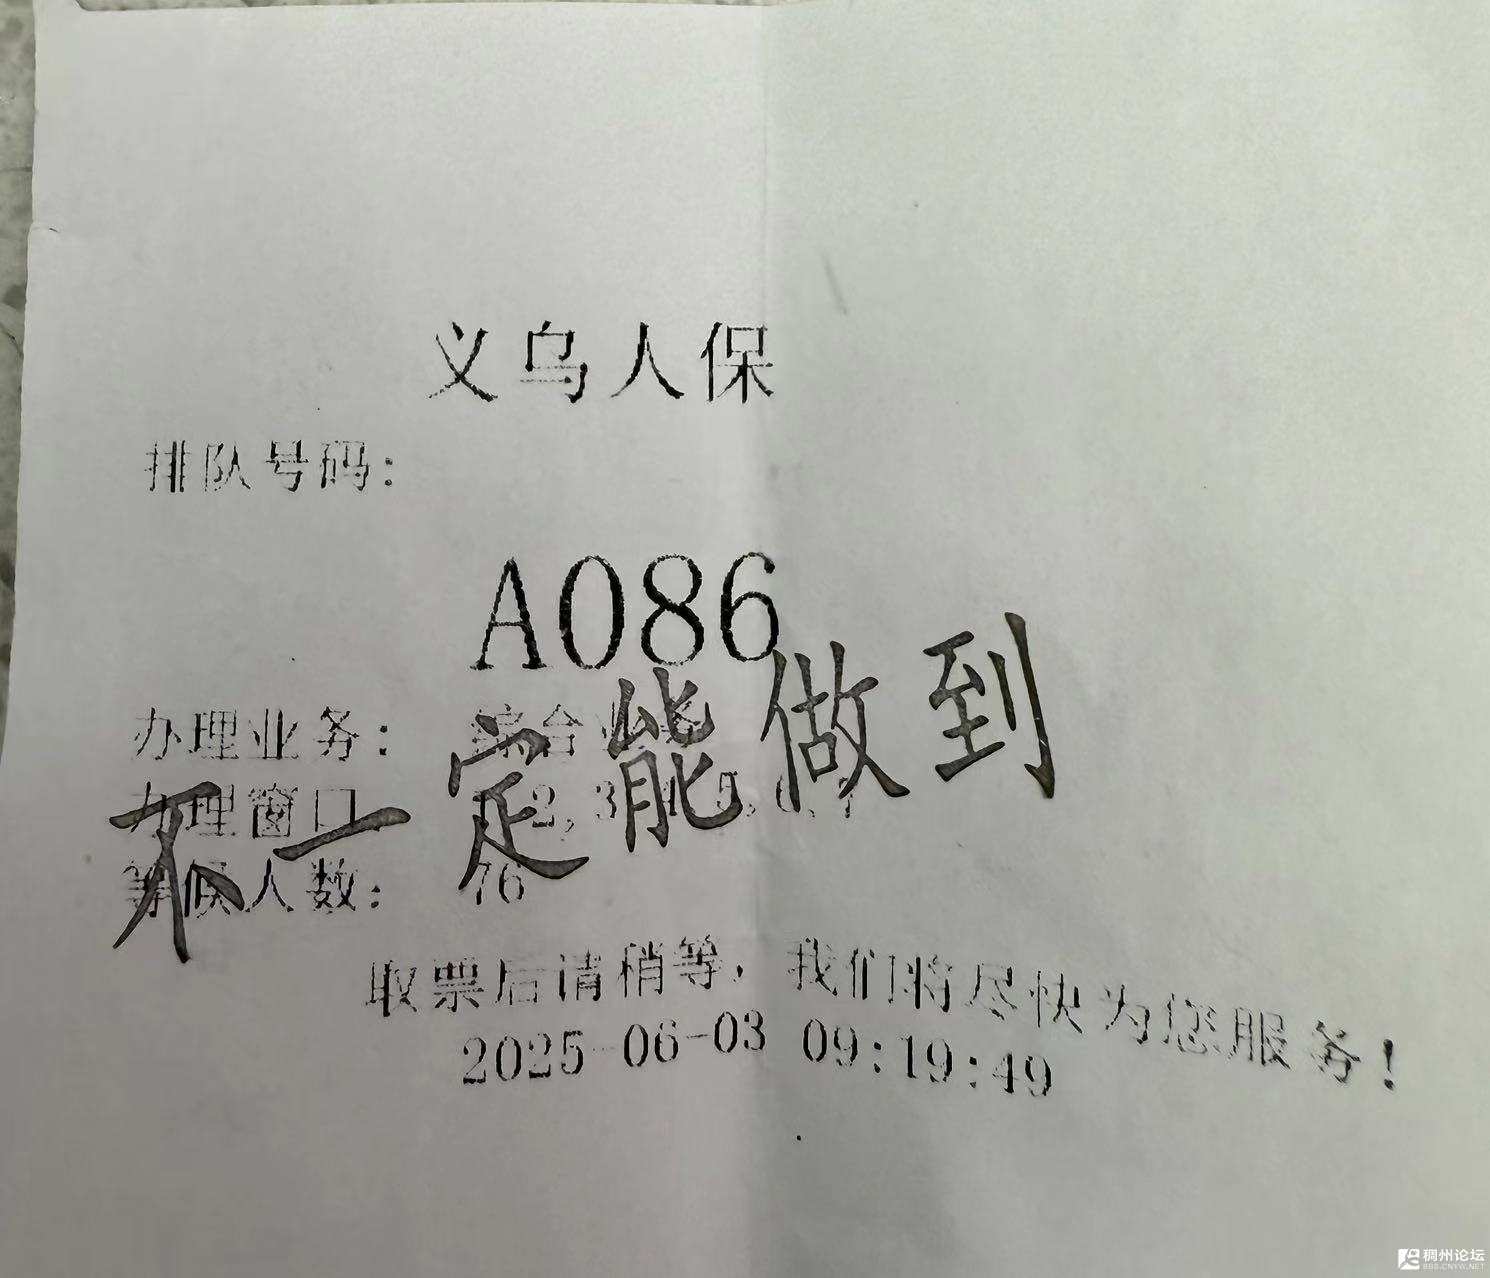 义乌人保
排队号码:
A086
办理业务: 综合业务
办理窗口: 2,3 5,
等候人数: 76
不一定能做到
取票后请稍等，我们将尽快为您服务!
2025-06-03 09:19:49
稠州论坛
BBS.CNYW.NET